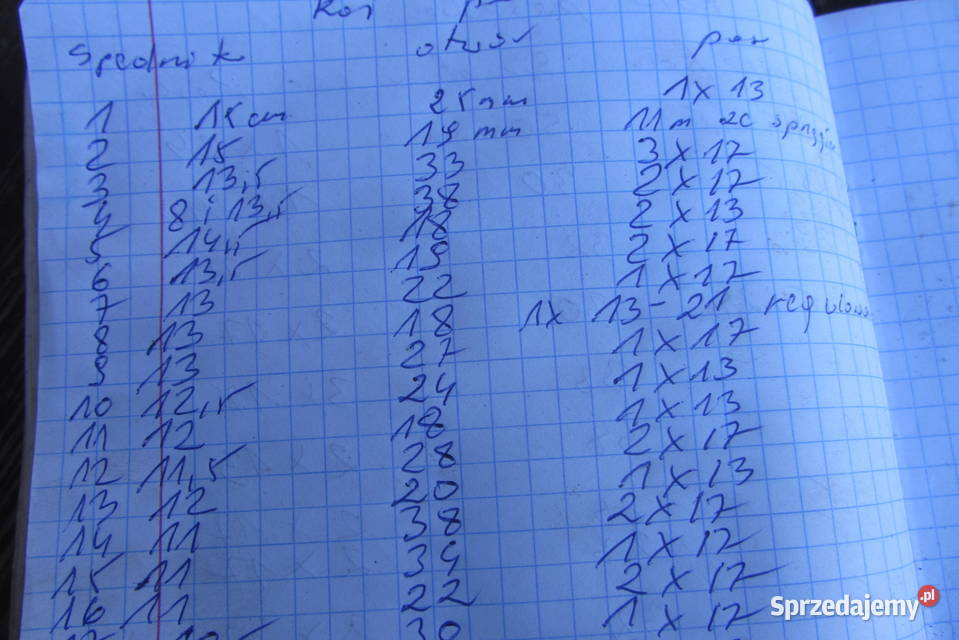 Koł
Średnik otwór pas
1 15 cm 25 mm 1 x 13
2 15 19 mm 11 m 20
3 13,5 33 3 x 17
4 8 i 13,5 38 2 x 17
5 14,5 18 2 x 13
6 13,5 19 2 x 17
7 13 22 1 x 17
8 13 18 1x 13-21
9 13 27 1 x 17
10 12,5 24 1 x 13
11 12 18 1 x 13
12 11,5 28 2 x 17
13 12 20 1 x 13
14 11 38 2 x 17
15 11 34 1 x 17
16 11 22 2 x 17
30 1 x 17
Sprzedajemy.pl